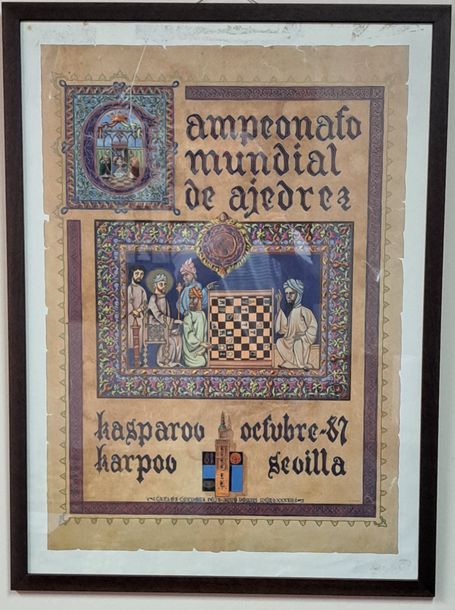 Campeonato
mundial
de ajedrez
kasparov octubre-87
karpov sevilla